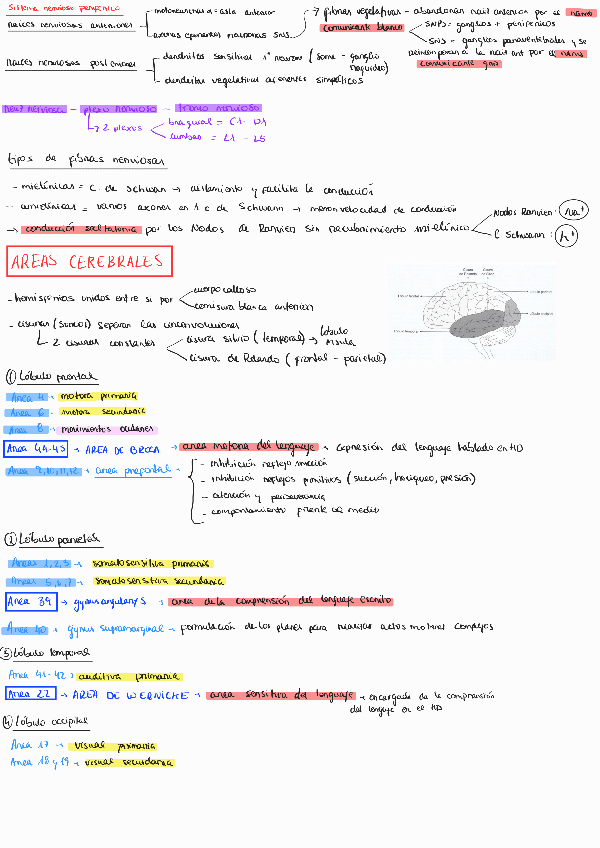 Sistema nervioso periférico
raíces nerviosas anteriores
motoneuronas α = asta anterior
axones eferentes neuronas SNS
→ fibras vegetativas - abandonan raíz anterior por el ramo
comunicante blanco
SNPS = ganglios + periféricos
SNS = ganglios paravertebrales y se
reincorporan a la raíz ant por el ramo
comunicante gris
raíces nerviosas posteriores
dendritas sensitivas 1ª neurona (soma - ganglio
raquídeo)
dendritas vegetativas aferentes simpáticos
raíz nerviosa - plexo nervioso - tronco nervioso
→ 2 plexos
braquial = C1 - D1
lumbar = L1 - L5
tipos de fibras nerviosas
- mielínicas = C. de Schwann → aislamiento y facilita la conducción
- amielínicas = varios axones en 1 c de Schwann → menor velocidad de conducción
→ conducción saltatoria por los Nodos de Ranvier sin recubrimiento mielínico
Nodos Ranvier: Na+
C Schwann: K+
AREAS CEREBRALES
- hemisferios unidos entre sí por
cuerpo calloso
comisura blanca anterior
- cisuras (surcos) separan las circunvoluciones
→ 2 cisuras constantes
cisura silvio (temporal) → lóbulo
ínsula
cisura de Rolando (frontal - parietal)
① Lóbulo frontal
Area 4 → motora primaria
Area 6 → motora secundaria
Area 8 → movimientos oculares
Area 44-45 → AREA DE BROCA → area motora del lenguaje → expresión del lenguaje hablado en HD
Area 9,10,11,12 → area prefrontal
- inhibición reflejo micción
- inhibición reflejos primitivos (succión, hociqueo, presión)
- atención y perseverancia
- comportamiento frente al medio
② Lóbulo parietal
Area 1,2,3 → somatosensitiva primaria
Area 5,6,7 → somatosensitiva secundaria
Area 39 → gyrus angularis → area de la comprensión del lenguaje escrito
Area 40 → gyrus supramarginal → formulación de los planes para realizar actos motores complejos
③ Lóbulo temporal
Area 41-42 → auditiva primaria
Area 22 → AREA DE WERNICKE → area sensitiva del lenguaje → encargada de la comprensión
del lengaje en el HD
④ Lóbulo occipital
Area 17 → visual primaria
Area 18 y 19 → visual secundaria